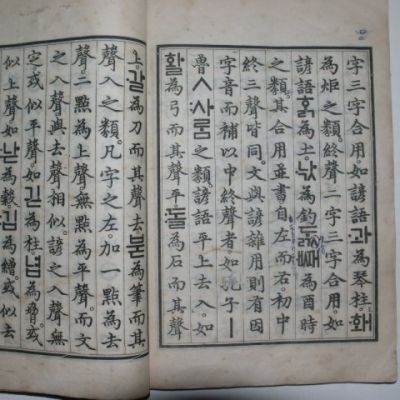 字三字合用。如諺語과為琴柱。홰
為炬之類。終聲二字三字合用。如
諺語ᄒᆞᆰ為土。낛為釣。ᄃᆞᇌᄣᅢ為酉時
之類。其合用並書。自左而右。初中
終三聲皆同。文與諺雜用則有因
字音而補以中終聲者。如孔子ㅣ
魯ㅅ사ᄅᆞᆷ之類。諺語平上去入。如
활為弓而其聲平。돌為石而其聲
上。갈為刀而其聲去。붇為筆而其
聲入之類。凡字之左。加一點為去
聲。二點為上聲。無點為平聲。而文
之入聲。與去聲相似。諺之入聲無
定。或似平聲。如긷為柱。녑為脅。或
似上聲。如낟為穀。깁為繒。或似去